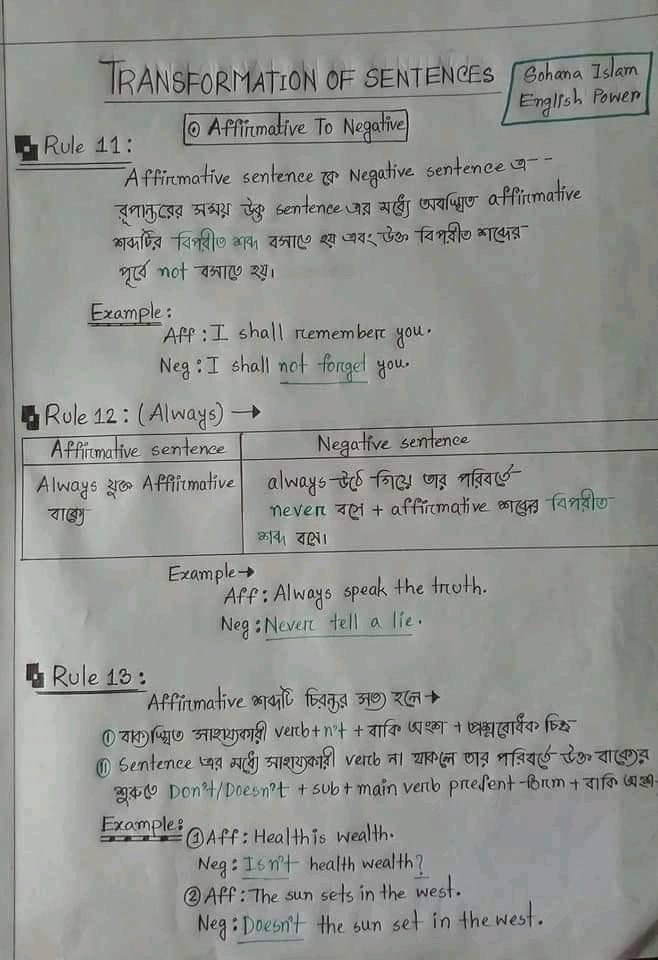 TRANSFORMATION OF SENTENCES
Sohana Islam
English Power
⊙ Affirmative To Negative
Rule 11:
Affirmative sentence কে Negative sentence এ--
রূপান্তরের সময় উক্ত sentence এর মধ্যে অবস্থিত affirmative
শব্দটির বিপরীত শব্দ বসাতে হয় এবং উক্ত বিপরীত শব্দের
পূর্বে not বসাতে হয়।
Example:
Aff: I shall remember you.
Neg: I shall not forget you.
Rule 12: (Always) →
Affirmative sentence
Negative sentence
Always যুক্ত Affirmative
বাক্যে
always উঠে গিয়ে তার পরিবর্তে
never বসে + affirmative শব্দের বিপরীত
শব্দ বসে।
Example→
Aff: Always speak the truth.
Neg: Never tell a lie.
Rule 13:
Affirmative শব্দটি চিরন্তন সত্য হলে→
① বাক্যস্থিত সাহায্যকারী verb+n't + বাকি অংশ + প্রশ্নবোধক চিহ্ন
② Sentence এর মধ্যে সাহায্যকারী verb না থাকলে তার পরিবর্তে উক্ত বাক্যের
শুরুতে Don't/Doesn't + sub + main verb present form + বাকি অংশ
Example:
① Aff: Health is wealth.
Neg: Isn't health wealth?
② Aff: The sun sets in the west.
Neg: Doesn't the sun set in the west.